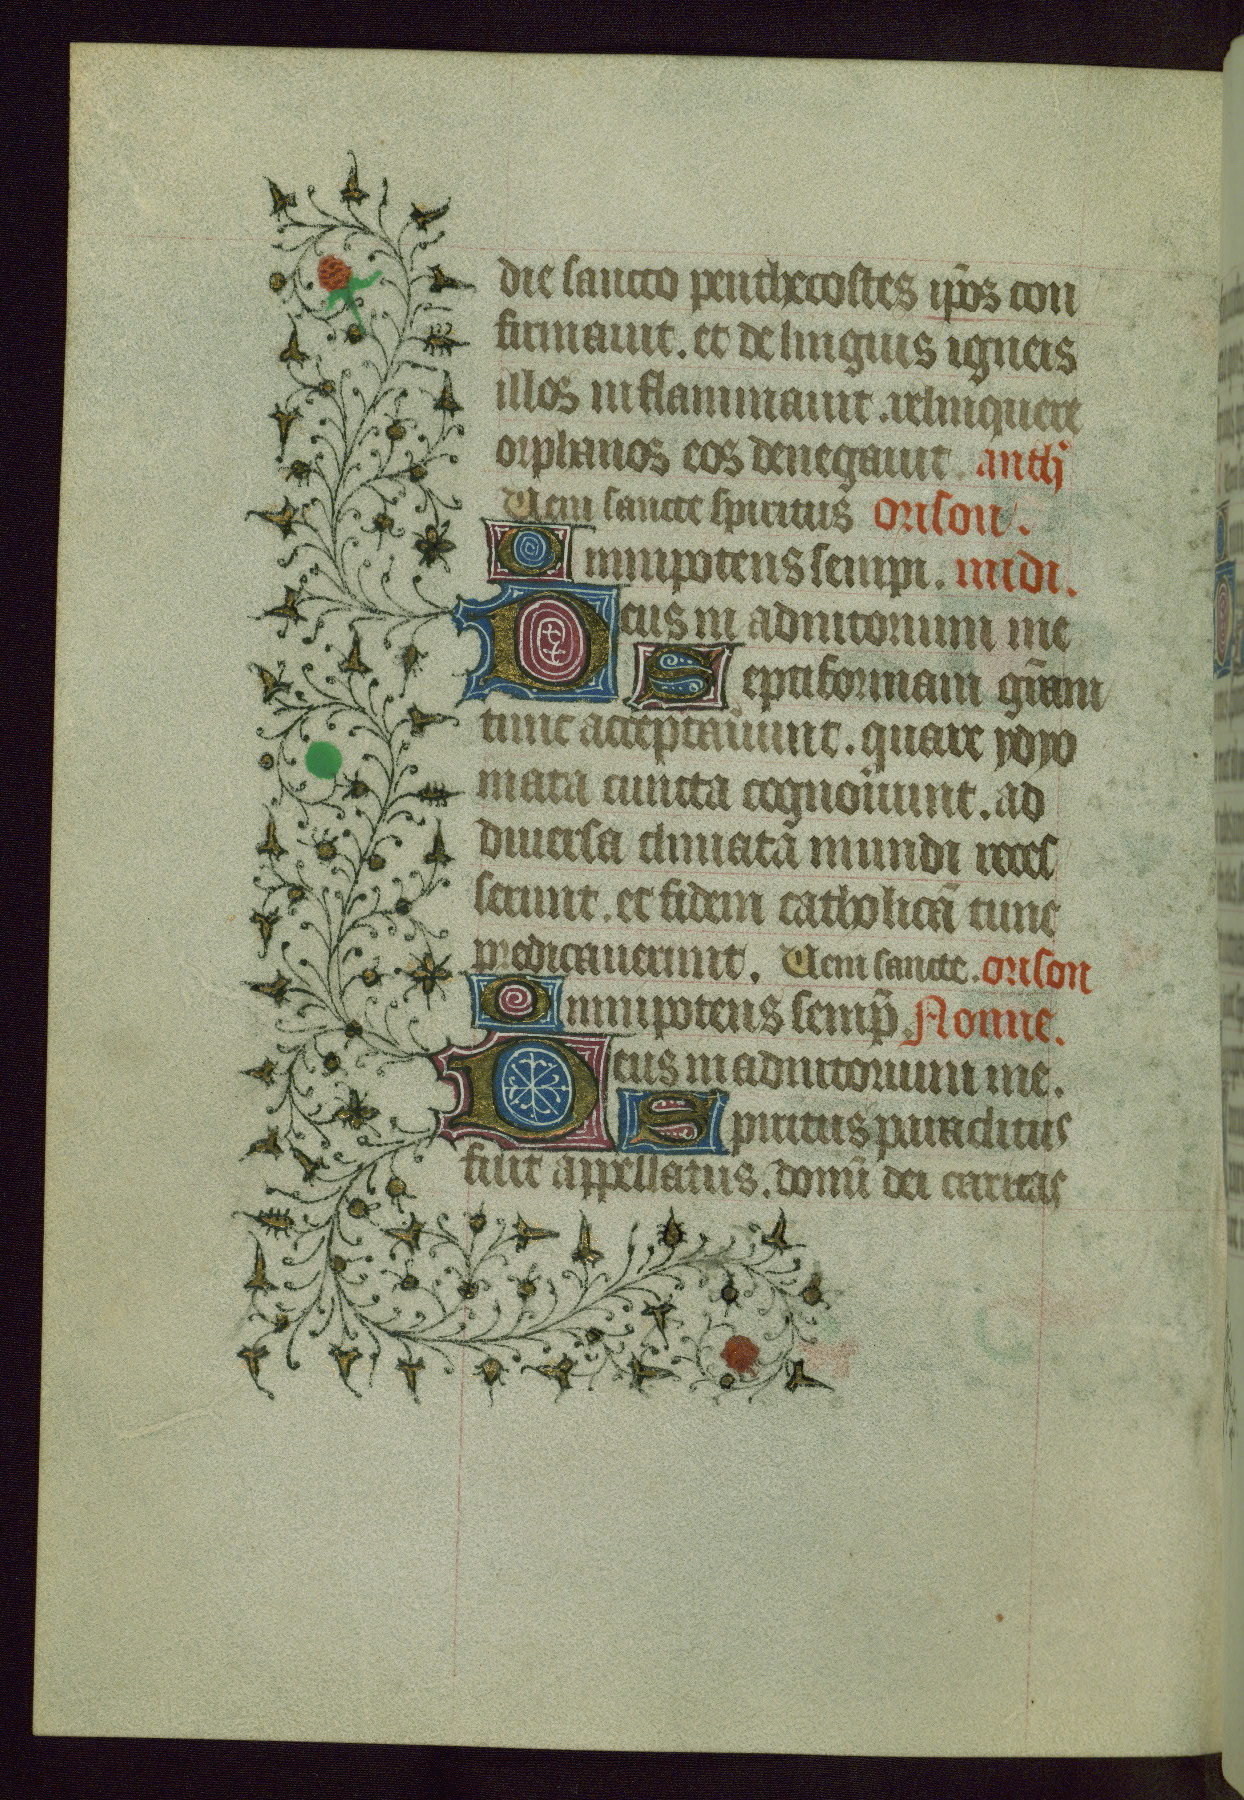 die sancto penthecostes ip̄os con
firmauit. et de linguis igneis
illos inflammauit. relinquere
orphanos eos denegauit. anth
Ueni sancte spiritus orison.
Omnipotens sempi. midi.
Deus in adiutorium me
Septiformam gr̄am
tunc acceptau̅unt. quare ydyo
mata cuncta cognou̅unt. ad
diuersa climata mundi reces
serunt. et fidem catholicā tunc
predicauerunt. Ueni sancte. orison
Omnipotens semp̄. Nonne.
Deus in adiutorium me.
Spiritus paraclitus
fuit appellatus. donū dei caritas